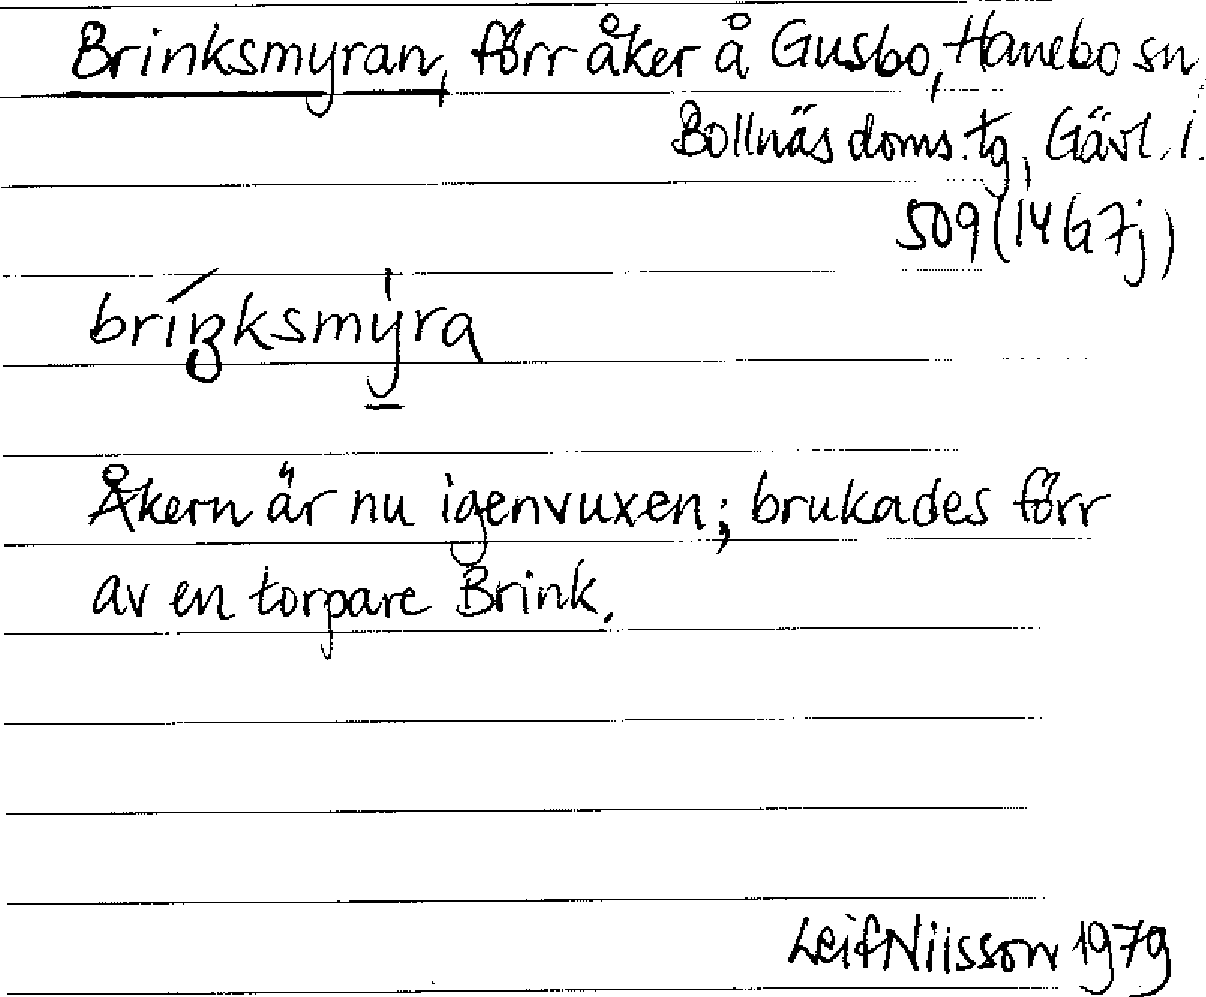 Brinksmyran, förr åker å Gusbo, Hanebo sn,
Bollnäs doms.tg, Gävl. l.
509 (14G7j)
bríŋksmy̠̍ra
Åkern är nu igenvuxen; brukades förr
av en torpare Brink.
Leif Nilsson 1979